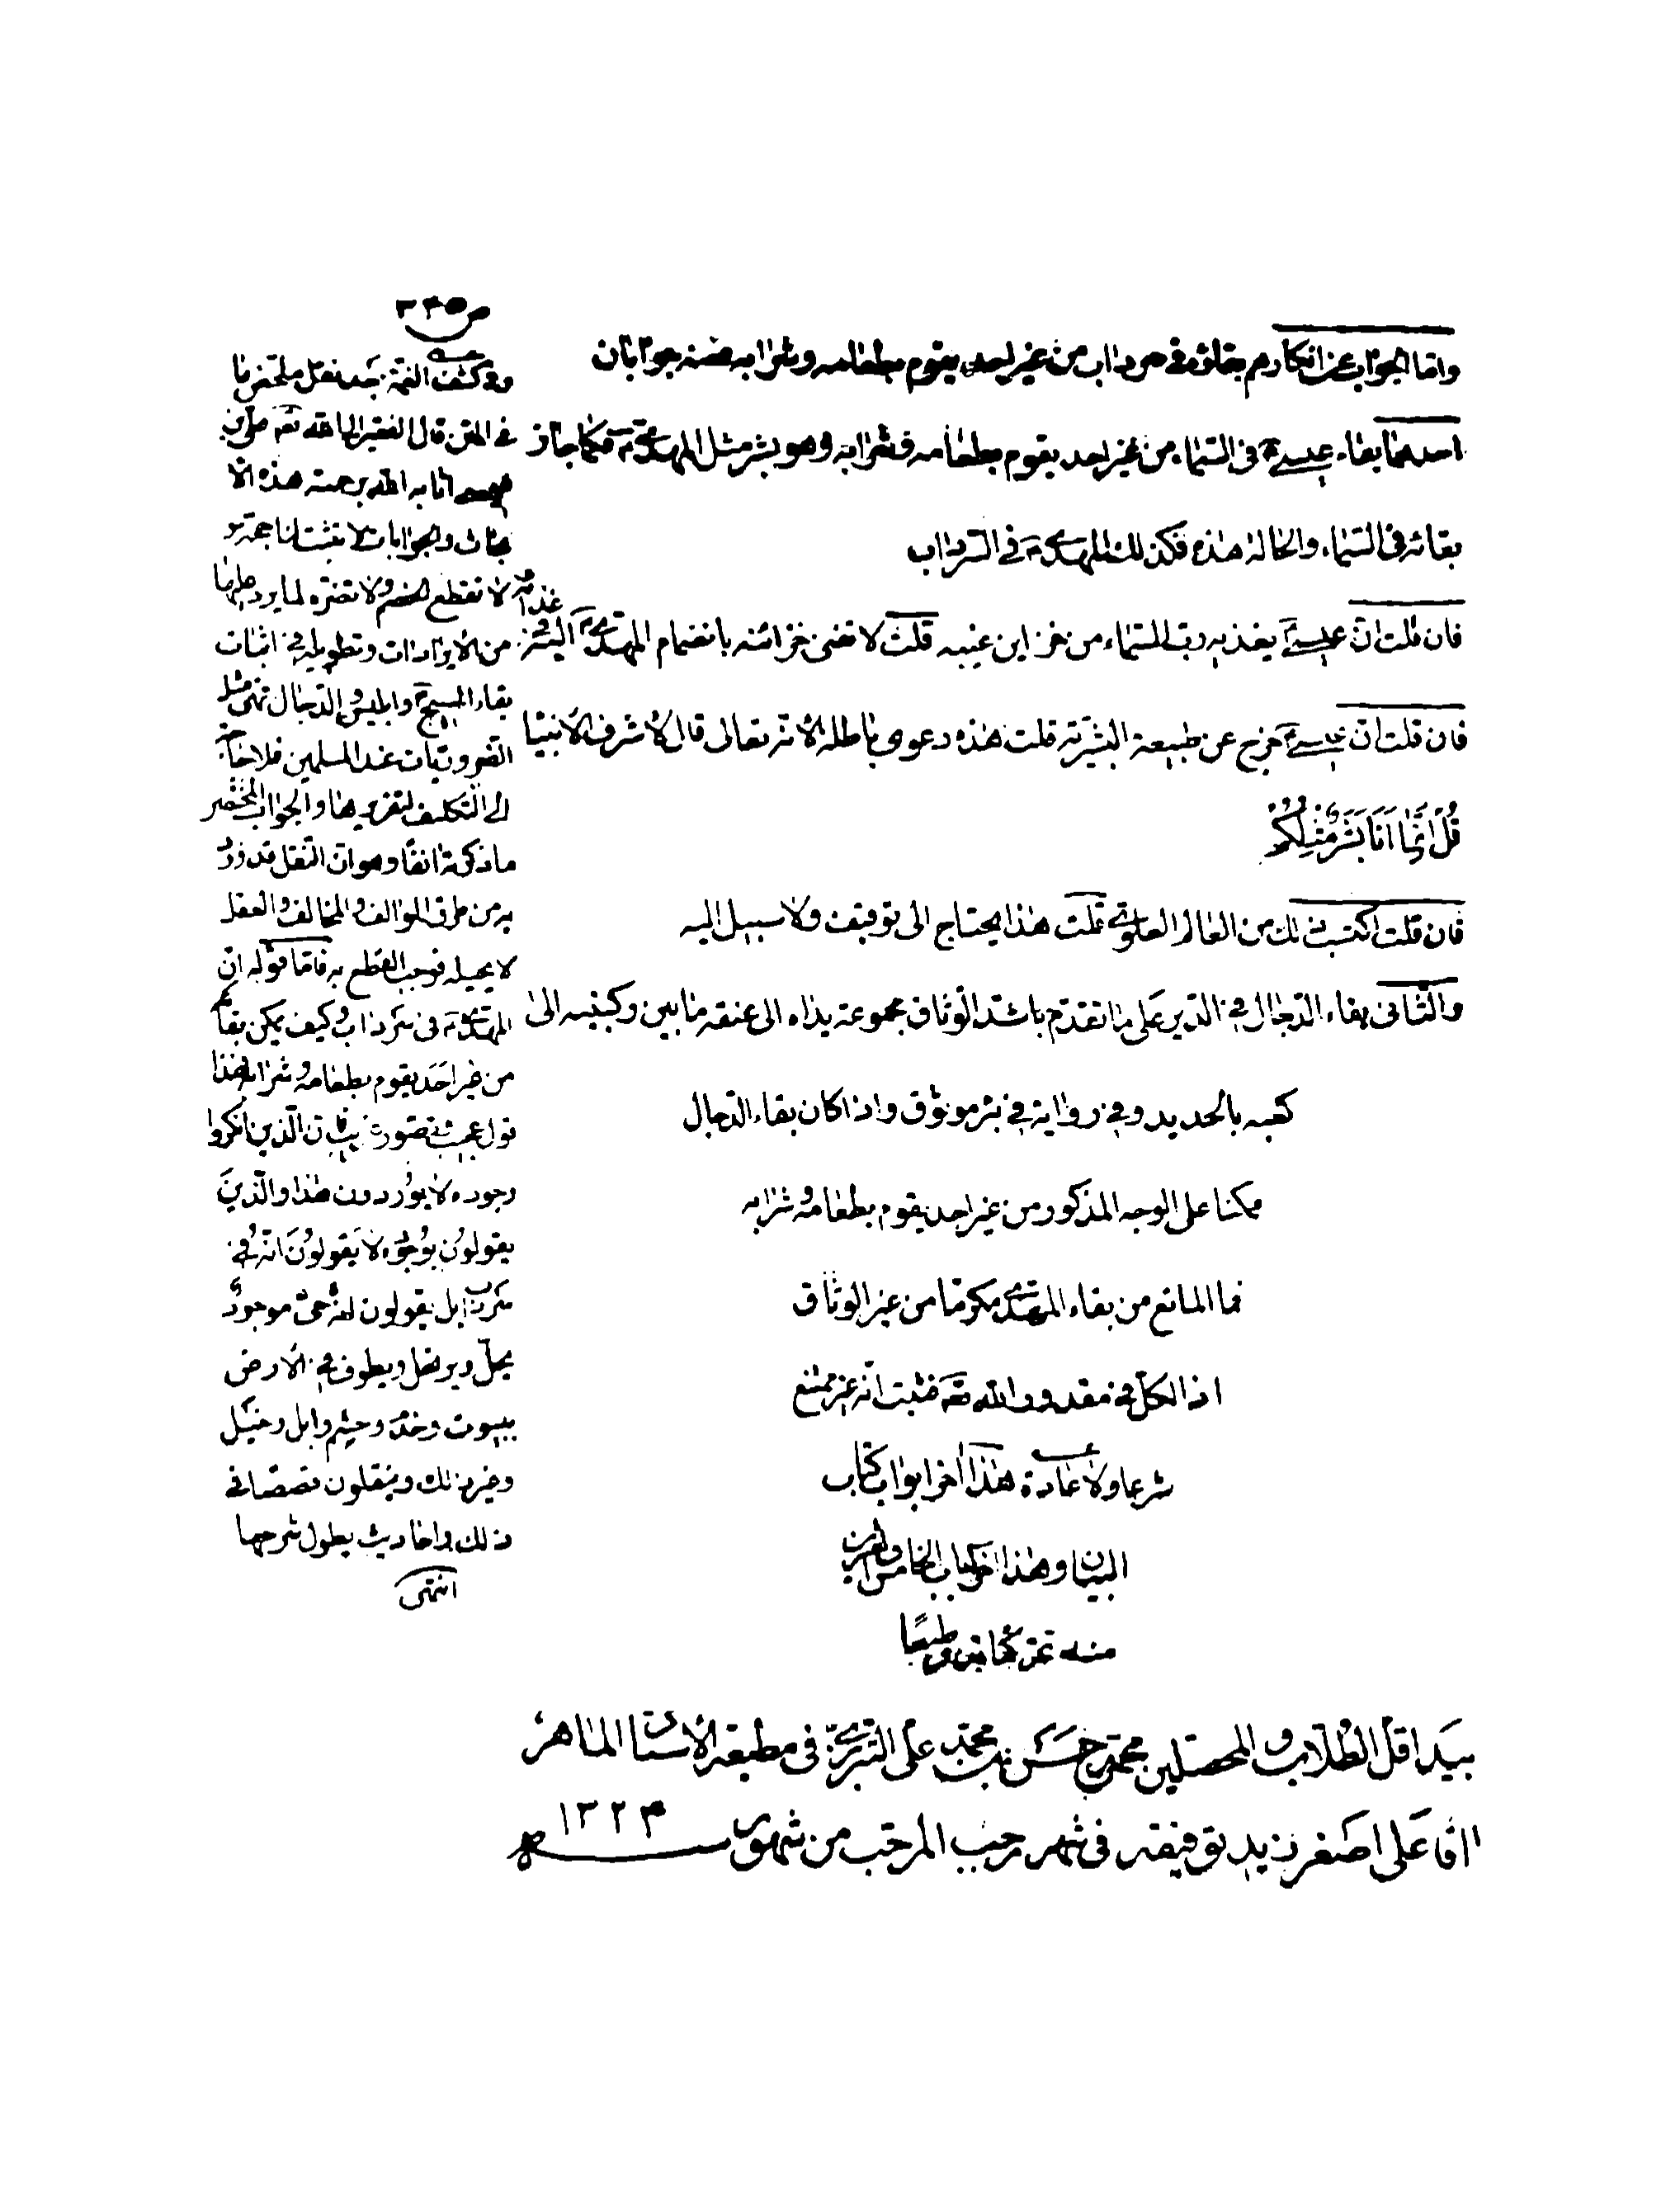 ص ٣٣٥
واما الجواب عن انكارهم بقاؤه فى سرداب من غير احد يقوم بطعامه وشرابه ففيه جوابان
احدهما بقاء عيسى ع فى السماء من غير احد يقوم بطعامه وشرابه وهو بشر مثل المهدى ع فكما جاز
بقائه فى السماء والحالة هذه فكذلك المهدى ع فى السرداب
فان قلت ان عيسى ع يغذيه رب السماء من خزاين غيبه قلت لا تفنى خزائنه بانضمام المهدى ع اليه فى غذائه
فان قلت ان عيسى ع خرج عن طبيعة البشرية قلت هذه دعوى باطلة لانه تعالى قال لاشرف الانبيا
قُلْ اِنَّمَا اَنَا بَشَرٌ مِثْلُكُمْ
فان قلت اكتسب ذلك من العالم العلوى قلت هذا يحتاج الى توقيف ولا سبيل اليه
والثانى بقاء الدجال فى الدير على ما تقدم باشد الوثاق مجموعة يداه الى عنقه ما بين ركبتيه الى
كعبه بالحديد وفى رواية فى بئر موثوق واذا كان بقاء الدجال
ممكنا على الوجه المذكور من غير احد يقوم بطعامه وشرابه
فما المانع من بقاء المهدى مكرما من غير الوثاق
اذ الكل فى مقدور الله تع فثبت انه غير ممتنع
شرعا ولا عادة هذا اخر ابواب كتاب
البيان وهذا اخر الباب الخامس والعشرين
منه تمت
وفى كشف الغمة بعد نقل ملخص ما
فى المتن قال الفقير الى الله تع على بن
عيسى اثابه الله برحمته هذه الا
بحاث والجوابات لا تثبت لنا حجة و
لا تقطع الخصم ولا تضره لما يرد عليها
من الايرادات وتطويله فى اثبات
بقاء المسيح ع وابليس والدجال فهى مثل
الضروريات عند المسلمين فلا حاجة
الى التكليف لتقريرها والجواب المختصر
ما ذكرته انفا وهو ان النقل قد ورد
به من طرق الموالف والمخالف والعقل
لا يحيله فوجب القطع به فاما قوله ان
المهدى ع فى سرداب وكيف يمكن بقاؤه
من غير احد يقوم بطعامه وشرابه فهذا
قول عجيب وتصور غريب فان الذين انكروا
وجوده لا يوردون هذا والذين
يقولون بوجوده لا يقولون انه فى
سرداب بل يقولون انه حى موجود
يحل ويرتحل ويطوف فى الارض
ببيوت وخدم وحشم وابل وخيل
وغير ذلك وينقلون قصصا فى
ذلك واحاديث يطول شرحها
انتهى
بيد اقل الطلاب والمحصلين محمد حسن بن محمد على التبريزى فى مطبعة الاستاد الماهر
اقا على اصغر زيد توفيقه فى شهر رجب المرجب من شهور ١٣٢٤